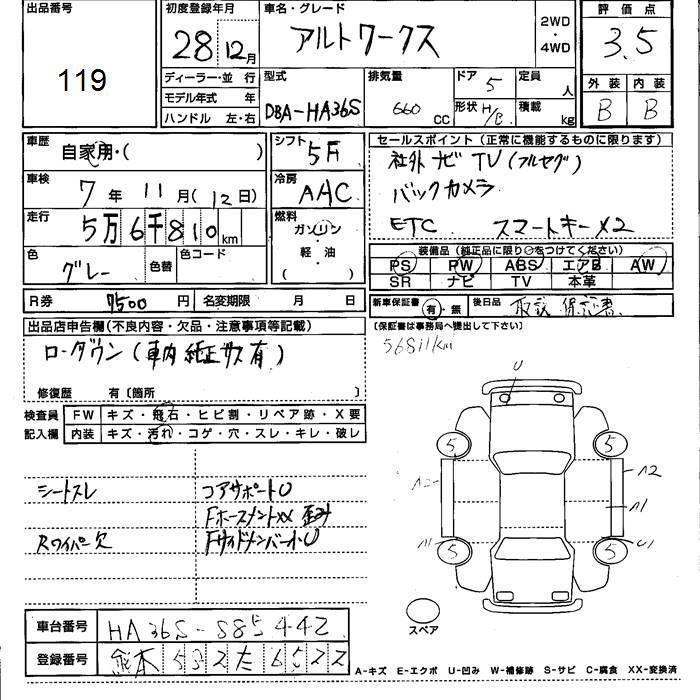 出品番号
119
初度登録年月
28 12月
車名・グレード
アルトワークス
2WD
・
4WD
評価点
3.5
ディーラー・並 行
モデル年式 年
ハンドル 左・右
型式
DBA-HA36S
排気量
660
CC
ドア 5
形状 H/B
定員
人
積載
kg
外装 内装
B B
車歴
自家用・( )
車検
7 年 11 月 (12 日)
走行
5万6千810km
色
グレー
色替
色コード
シフト
5F
冷房
AAC
燃料
ガソリン
軽・油
( )
セールスポイント(正常に機能するものに限ります)
社外 ナビ TV (フルセグ)
バックカメラ
ETC スマートキー×2
装備品(純正品に限り○をつけてください)
PS PW ABS エアB AW
SR ナビ TV 本革
R券 9500 円
名変期限 月 日
新車保証書 有・無
後日品 取説 保証書
(保証書は事務局へ提出して下さい)
56811km
出品店申告欄(不良内容・欠品・注意事項等記載)
ローダウン(車内純正サス有)
修復歴 有〔箇所 〕
検査員
記入欄
FW キズ・飛石・ヒビ割・リペア跡・X要
内装 キズ・汚れ・コゲ・穴・スレ・キレ・破レ
シートスレ
コアサポートU
Fホースメントxx 歪み
Rワイパー欠
FサイドメンバーホU
U
5
5
A2
A2
A1
A1
5
5
U1
スペア
車台番号 HA36S-885442
登録番号 熊本 532 た 6522
A-キズ E-エクボ U-凹み W-補修跡 S-サビ C-腐食 XX-交換済